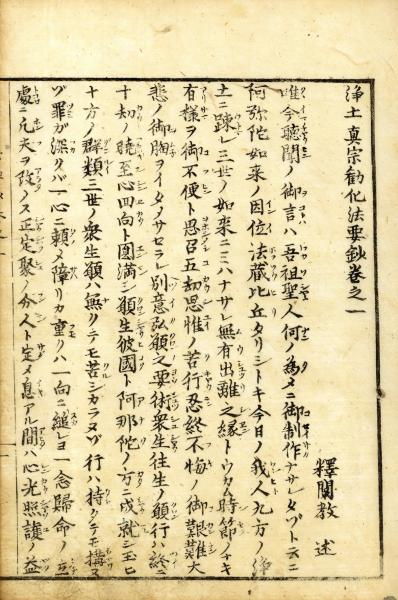 浄土真宗勧化法要鈔巻之一
釋聞教 述
唯今聴聞ノ御言ハ吾祖聖人何ノ為メニ御制作ナサレタゾト云ニ
阿弥陀如来ノ因位法蔵比丘タリシトキ今日ノ我人九方ノ浄
土ニ踈レ三世ノ如来ニミハナサレ無有出離之縁トウカム時節ノナキ
有様ヲ御不便ト思召五劫思惟ノ苦行忍終不悔ノ御艱難大
悲ノ御胸ヲイタメサセラレ別意弘願之要術衆生往生ノ願行ハ終ニ
十劫ノ暁至心回向ト圓満シ願生彼國ト阿那陀ノ方ニ成就シ玉ヒ
十方ノ群類三世ノ衆生願ハ無クテモ苦シカラヌゾ行ハ持タテモ構ヌ
ゾ罪ガ深クバ一心ニ頼メ障リカ重クハ一向ニ縋レヨ一念歸命ノ立
處ニ凢夫ヲ改メス正定聚ノ分人ト定メ息アル間ハ心光照護ノ益